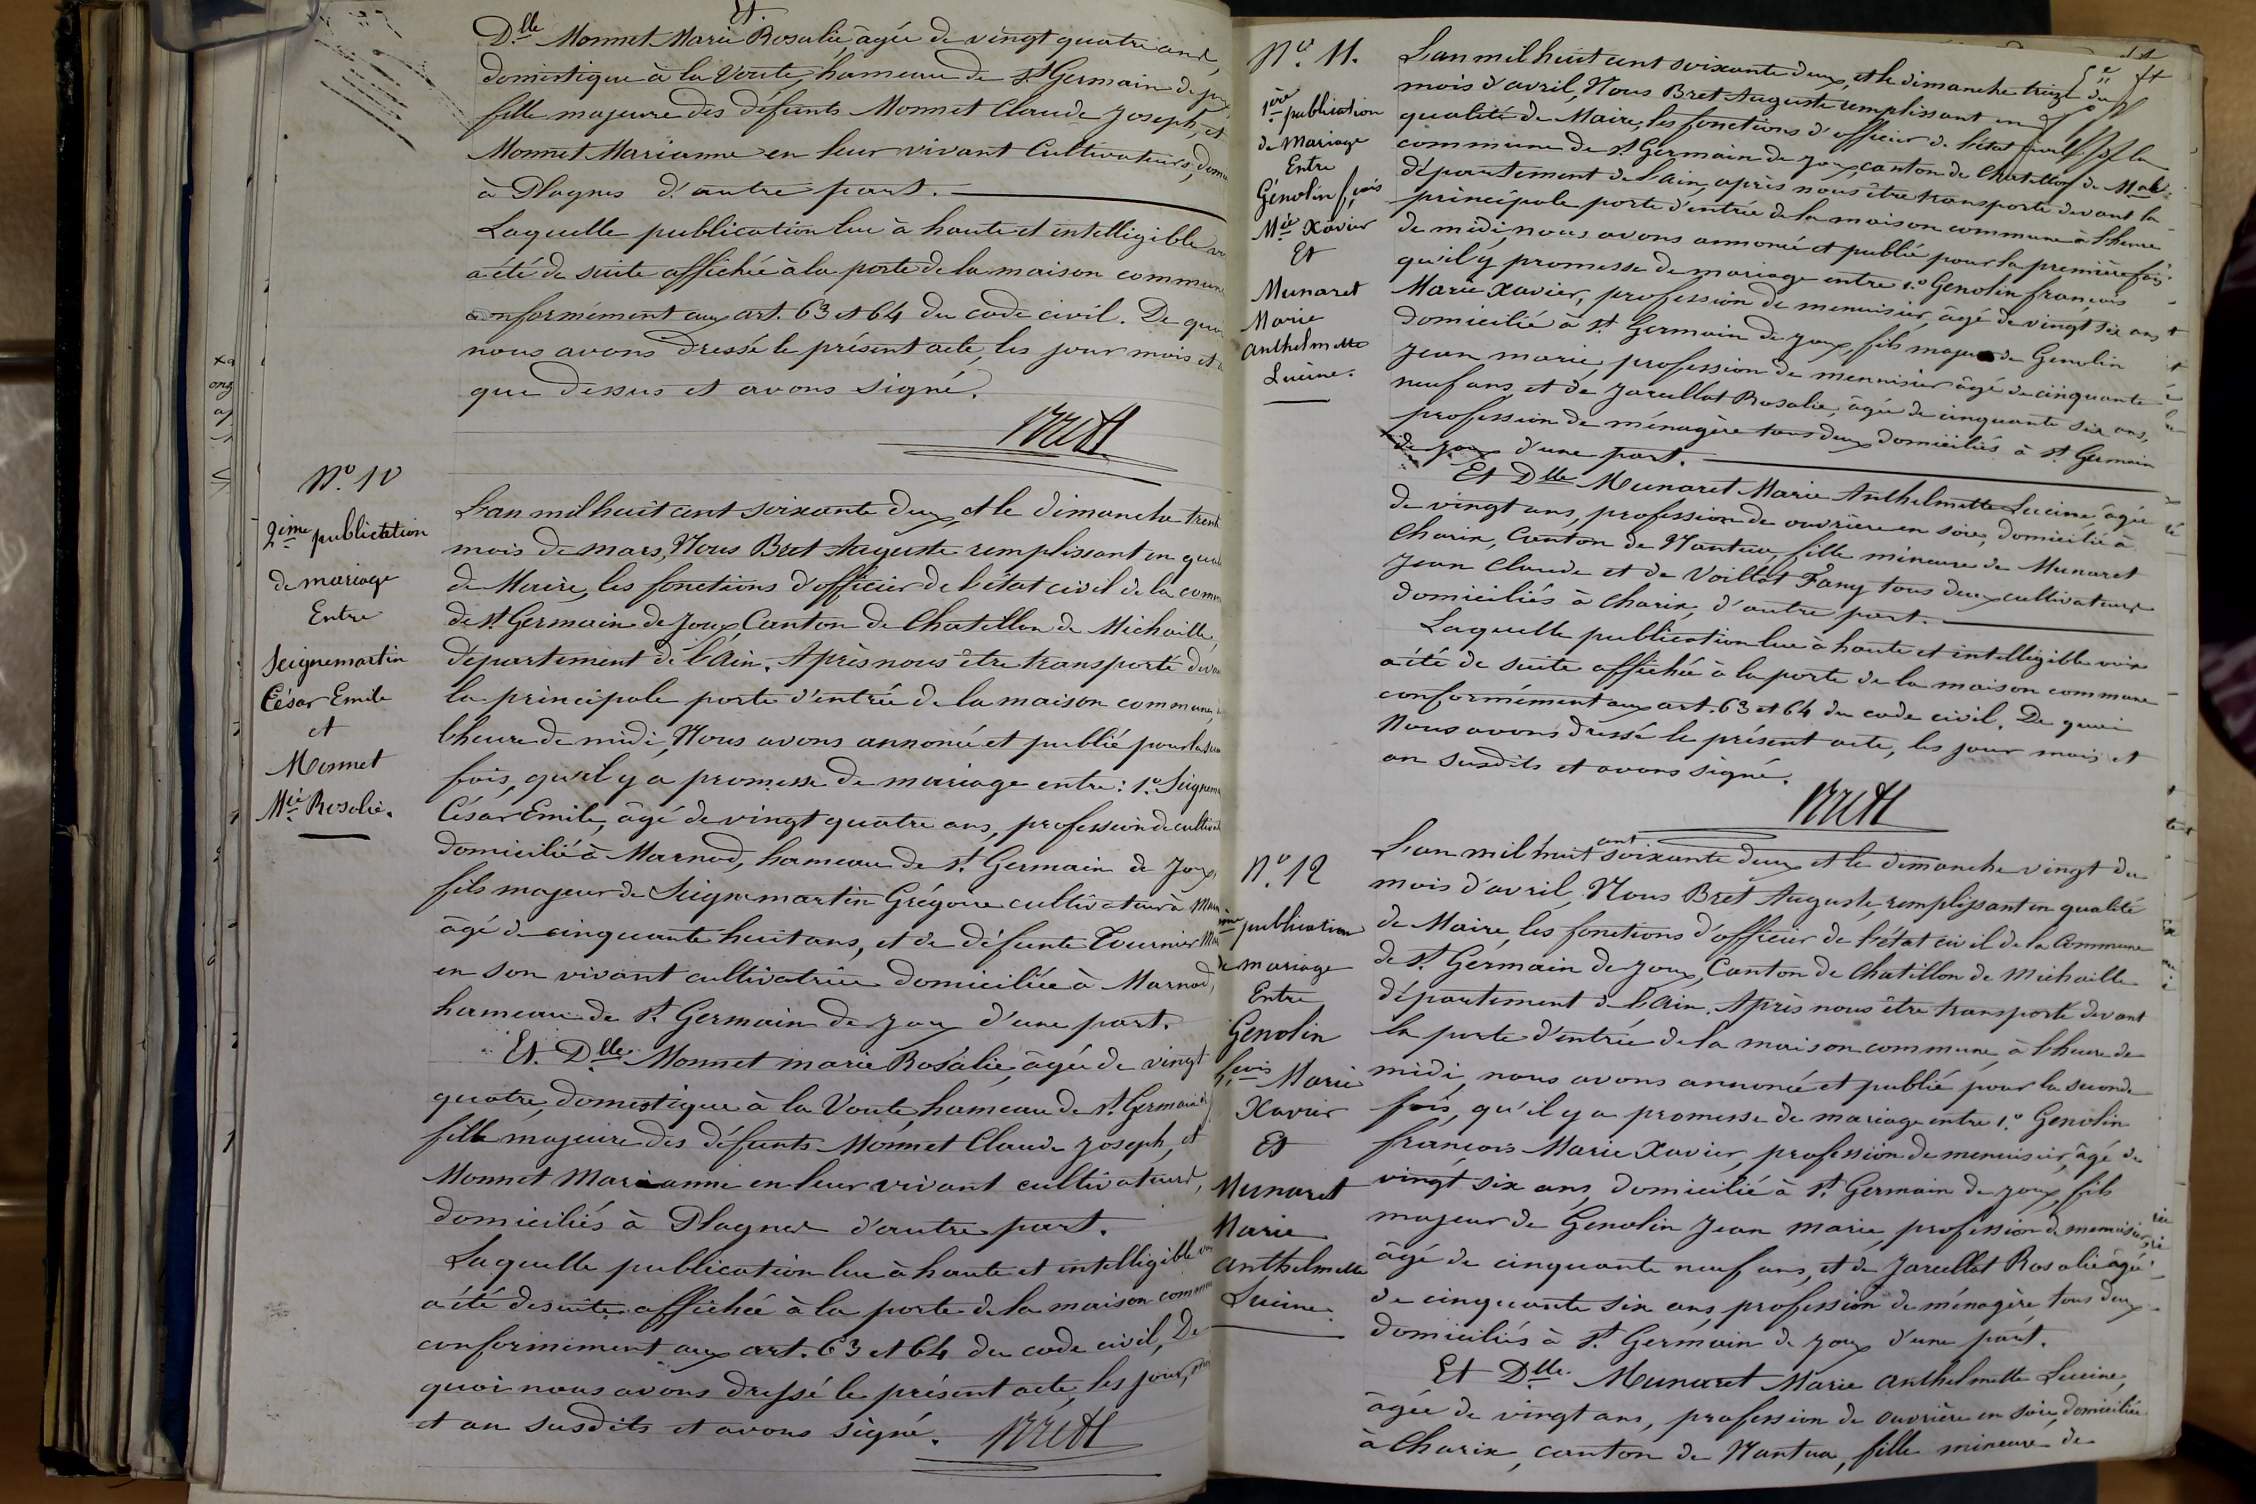 Et
Dlle Monnet Marie Rosalie, âgée de vingt quatre ans,
domestique à la Voute, hameau de St Germain de Joux
fille majeure des défunts Monnet Claude Joseph, et
Monnet Marianne en leur vivant Cultivateurs,
à Plagnes d'autre part.
Laquelle publication lue à haute et intelligible
a été de suite affichée à la porte de la maison commune
conformément aux art. 63 et 64 du code civil. De quoi
nous avons dressé le présent acte, les jour mois et
que dessus et avons signé.
Bret
No. 10
2ème publication
de mariage
Entre
Seignemartin
César Emile
et
Monnet
Mie Rosalie.
L'an mil huit cent soixante deux, et le dimanche trente
mois de mars, Nous Bret Auguste remplissant en qualité
de Maire, les fonctions d'officier de l'état civil de la
de St Germain de Joux Canton de Chatillon de Michaille,
département de l'Ain. Après nous être transporté devant
la principale porte d'entrée de la maison commune,
l'heure de midi, Nous avons annoncé et publié pour la
fois, qu'il y a promesse de mariage entre: 1o. Seignemartin
César Emile, âgé de vingt quatre ans, profession de
domicilié à Marnod, hameau de St Germain de Joux,
fils majeur de Seignemartin Grégoire cultivateur à
âgé de cinquante huit ans, et de défunte Tournier
en son vivant cultivatrice domiciliée à Marnod,
hameau de St Germain de Joux d'une part.
Et. Dlle Monnet marie Rosalie, âgée de vingt
quatre, domestique à la Voute, hameau de St Germain de
fille majeure des défunts Monnet Claude Joseph, et
Monnet Marianne en leur vivant cultivateurs,
domiciliés à Plagnes d'autre part.
Laquelle publication lue à haute et intelligible
a été de suite affichée à la porte de la maison commune
conformément aux art. 63 et 64 du code civil, De
quoi nous avons dressé le présent acte, les jour,
et an susdits et avons signé. Bret
No. 11.
1ère publication
de Mariage
Entre
Génolin fçois
Mie Xavier
Et
Munaret
Marie
Anthelmette
Lucine.
L'an mil huit cent soixante deux, et le dimanche treize du
mois d'avril, Nous Bret Auguste remplissant en
qualité de Maire, les fonctions d'officier de l'état civil de la
commune de St Germain de Joux, canton de Chatillon de Mlle.
département de l'ain, après nous être transporté devant la
principale porte d'entrée de la maison commune à l'heure
de midi, nous avons annoncé et publié pour la première fois
qu'il y promesse de mariage entre 1o Génolin françois
Marie Xavier, profession de menuisier, âgé de vingt six ans
domicilié à St Germain de Joux, fils majeur de Genolin
Jean marie, profession de menuisier âgé de cinquante
neuf ans, et de Jarcellat Rosalie, âgée de cinquante six ans,
profession de ménagère tous deux domiciliés à St Germain
de Joux d'une part.
Et Dlle Munaret Marie Anthelmette Lucine âgée
de vingt ans, profession de ouvrière en soie, domiciliée à
Charix, Canton de Nantua, fille mineure de Munaret
Jean Claude et de Voillat Fany tous deux cultivateurs
domiciliés à Charix, d'autre part.
Laquelle publication lue à haute et intelligible voix
a été de suite affichée à la porte de la maison commune
conformément aux art. 63 et 64 du code civil. De quoi
Nous avons dressé le présent acte, les jour mois et
an susdits et avons signé.
Bret
No. 12
ème publication
de mariage
Entre
Genolin
fçois Marie
Xavier
Et
Munaret
Marie
Anthelmette
Lucine.
L'an mil huit cent soixante deux et le dimanche vingt du
mois d'avril, Nous Bret Auguste, remplissant en qualité
de Maire, les fonctions d'officier de l'état civil de la Commune
de St Germain de Joux, Canton de Chatillon de Michaille
département de l'Ain. Après nous être transporté devant
la porte d'entrée de la maison commune, à l'heure de
midi, nous avons annoncé et publié pour la seconde
fois, qu'il y a promesse de mariage entre 1o Genolin
françois Marie Xavier, profession de menuisier, âgé de
vingt six ans, domicilié à St Germain de Joux, fils
majeur de Génolin Jean marie, profession de menuisier,
âgé de cinquante neuf ans, et de Jarcellat Rosalie âgée
de cinquante six ans profession de ménagère tous deux
domiciliés à St Germain de Joux d'une part.
Et Dlle. Munaret Marie Anthelmette Lucine,
âgée de vingt ans, profession de ouvrière en soie, domiciliée
à Charix, canton de Nantua, fille mineure de